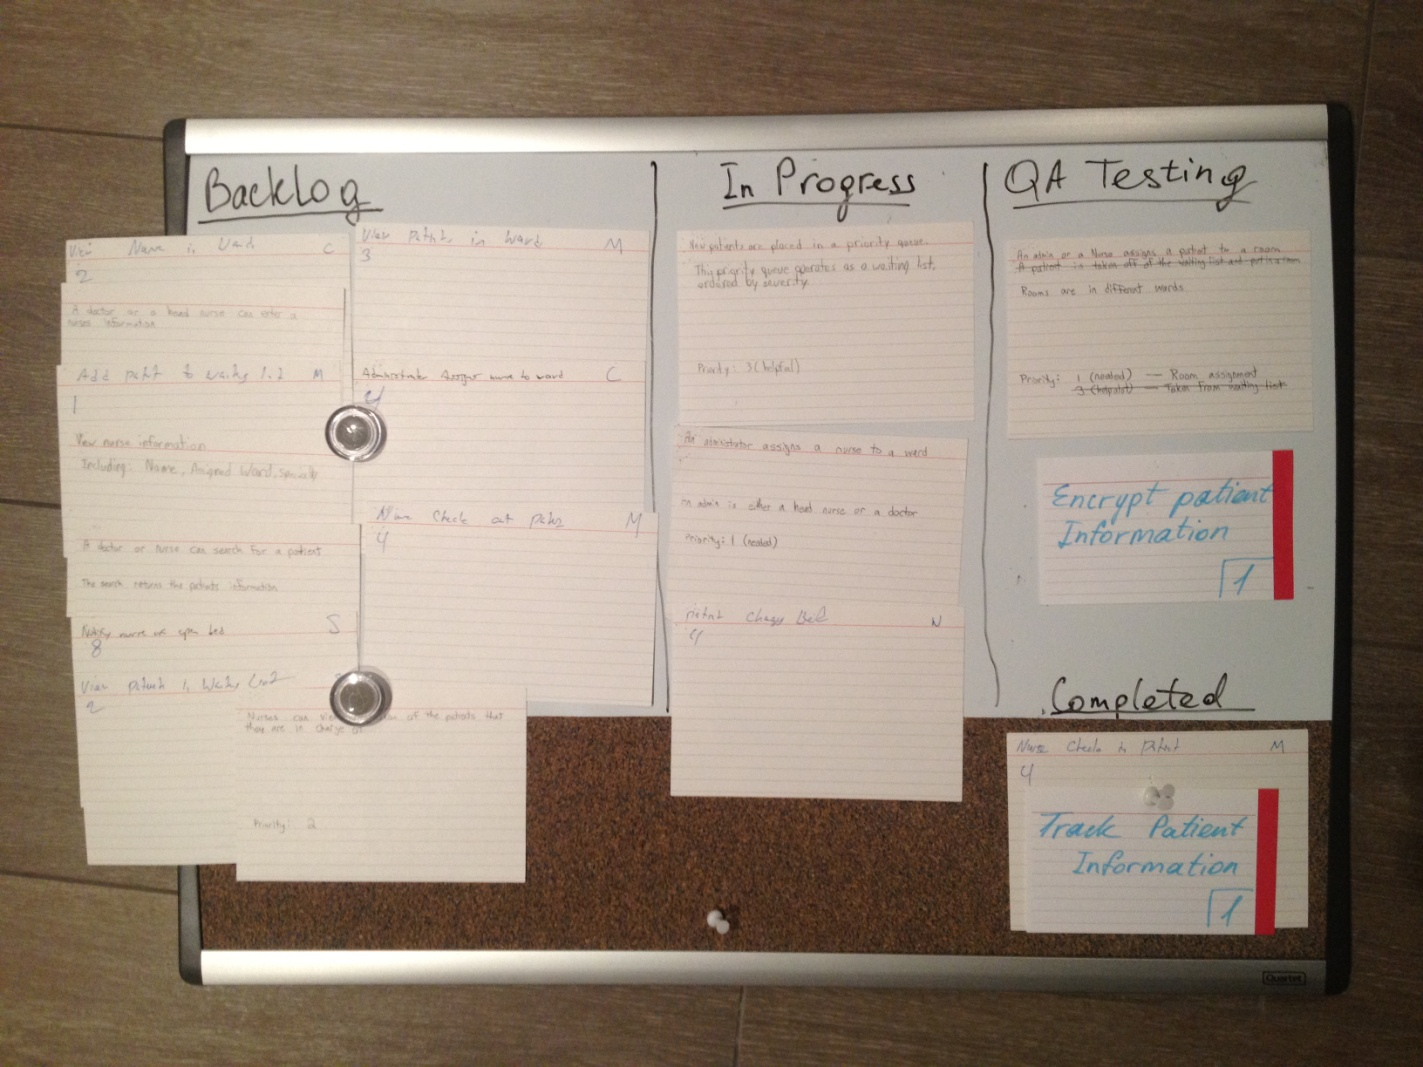 Backlog
View Nurse in Ward C
2
A doctor or a head nurse can enter a
nurses information
Add patient to waiting list M
1
View nurse information
Including: Name, Assigned Ward, specialty
A doctor or nurse can search for a patient
The search returns the patients information
Notify nurse open bed S
8
View patients waiting list
2
Nurses can view of the patients that
they are in charge of
Priority: 2
View patients in Ward M
3
Administrator Assigns nurse to ward C
4
Nurse Check out patient M
4
In Progress
New patients are placed in a priority queue.
This priority queue operates as a waiting list,
ordered by severity.
Priority: 3 (helpful)
An administrator assigns a nurse to a ward
An admin is either a head nurse or a doctor
Priority: 1 (needed)
patient Change Bed N
4
QA Testing
An admin or a Nurse assigns a patient to a room
A patient is taken off of the waiting list and put in a room
Rooms are in different wards.
Priority: 1 (needed) — Room assignment
3 (helpful) — Taken from waiting list
Encrypt patient
Information
1
Completed
Nurse Check in patient M
4
Track Patient
Information
1
Quartet